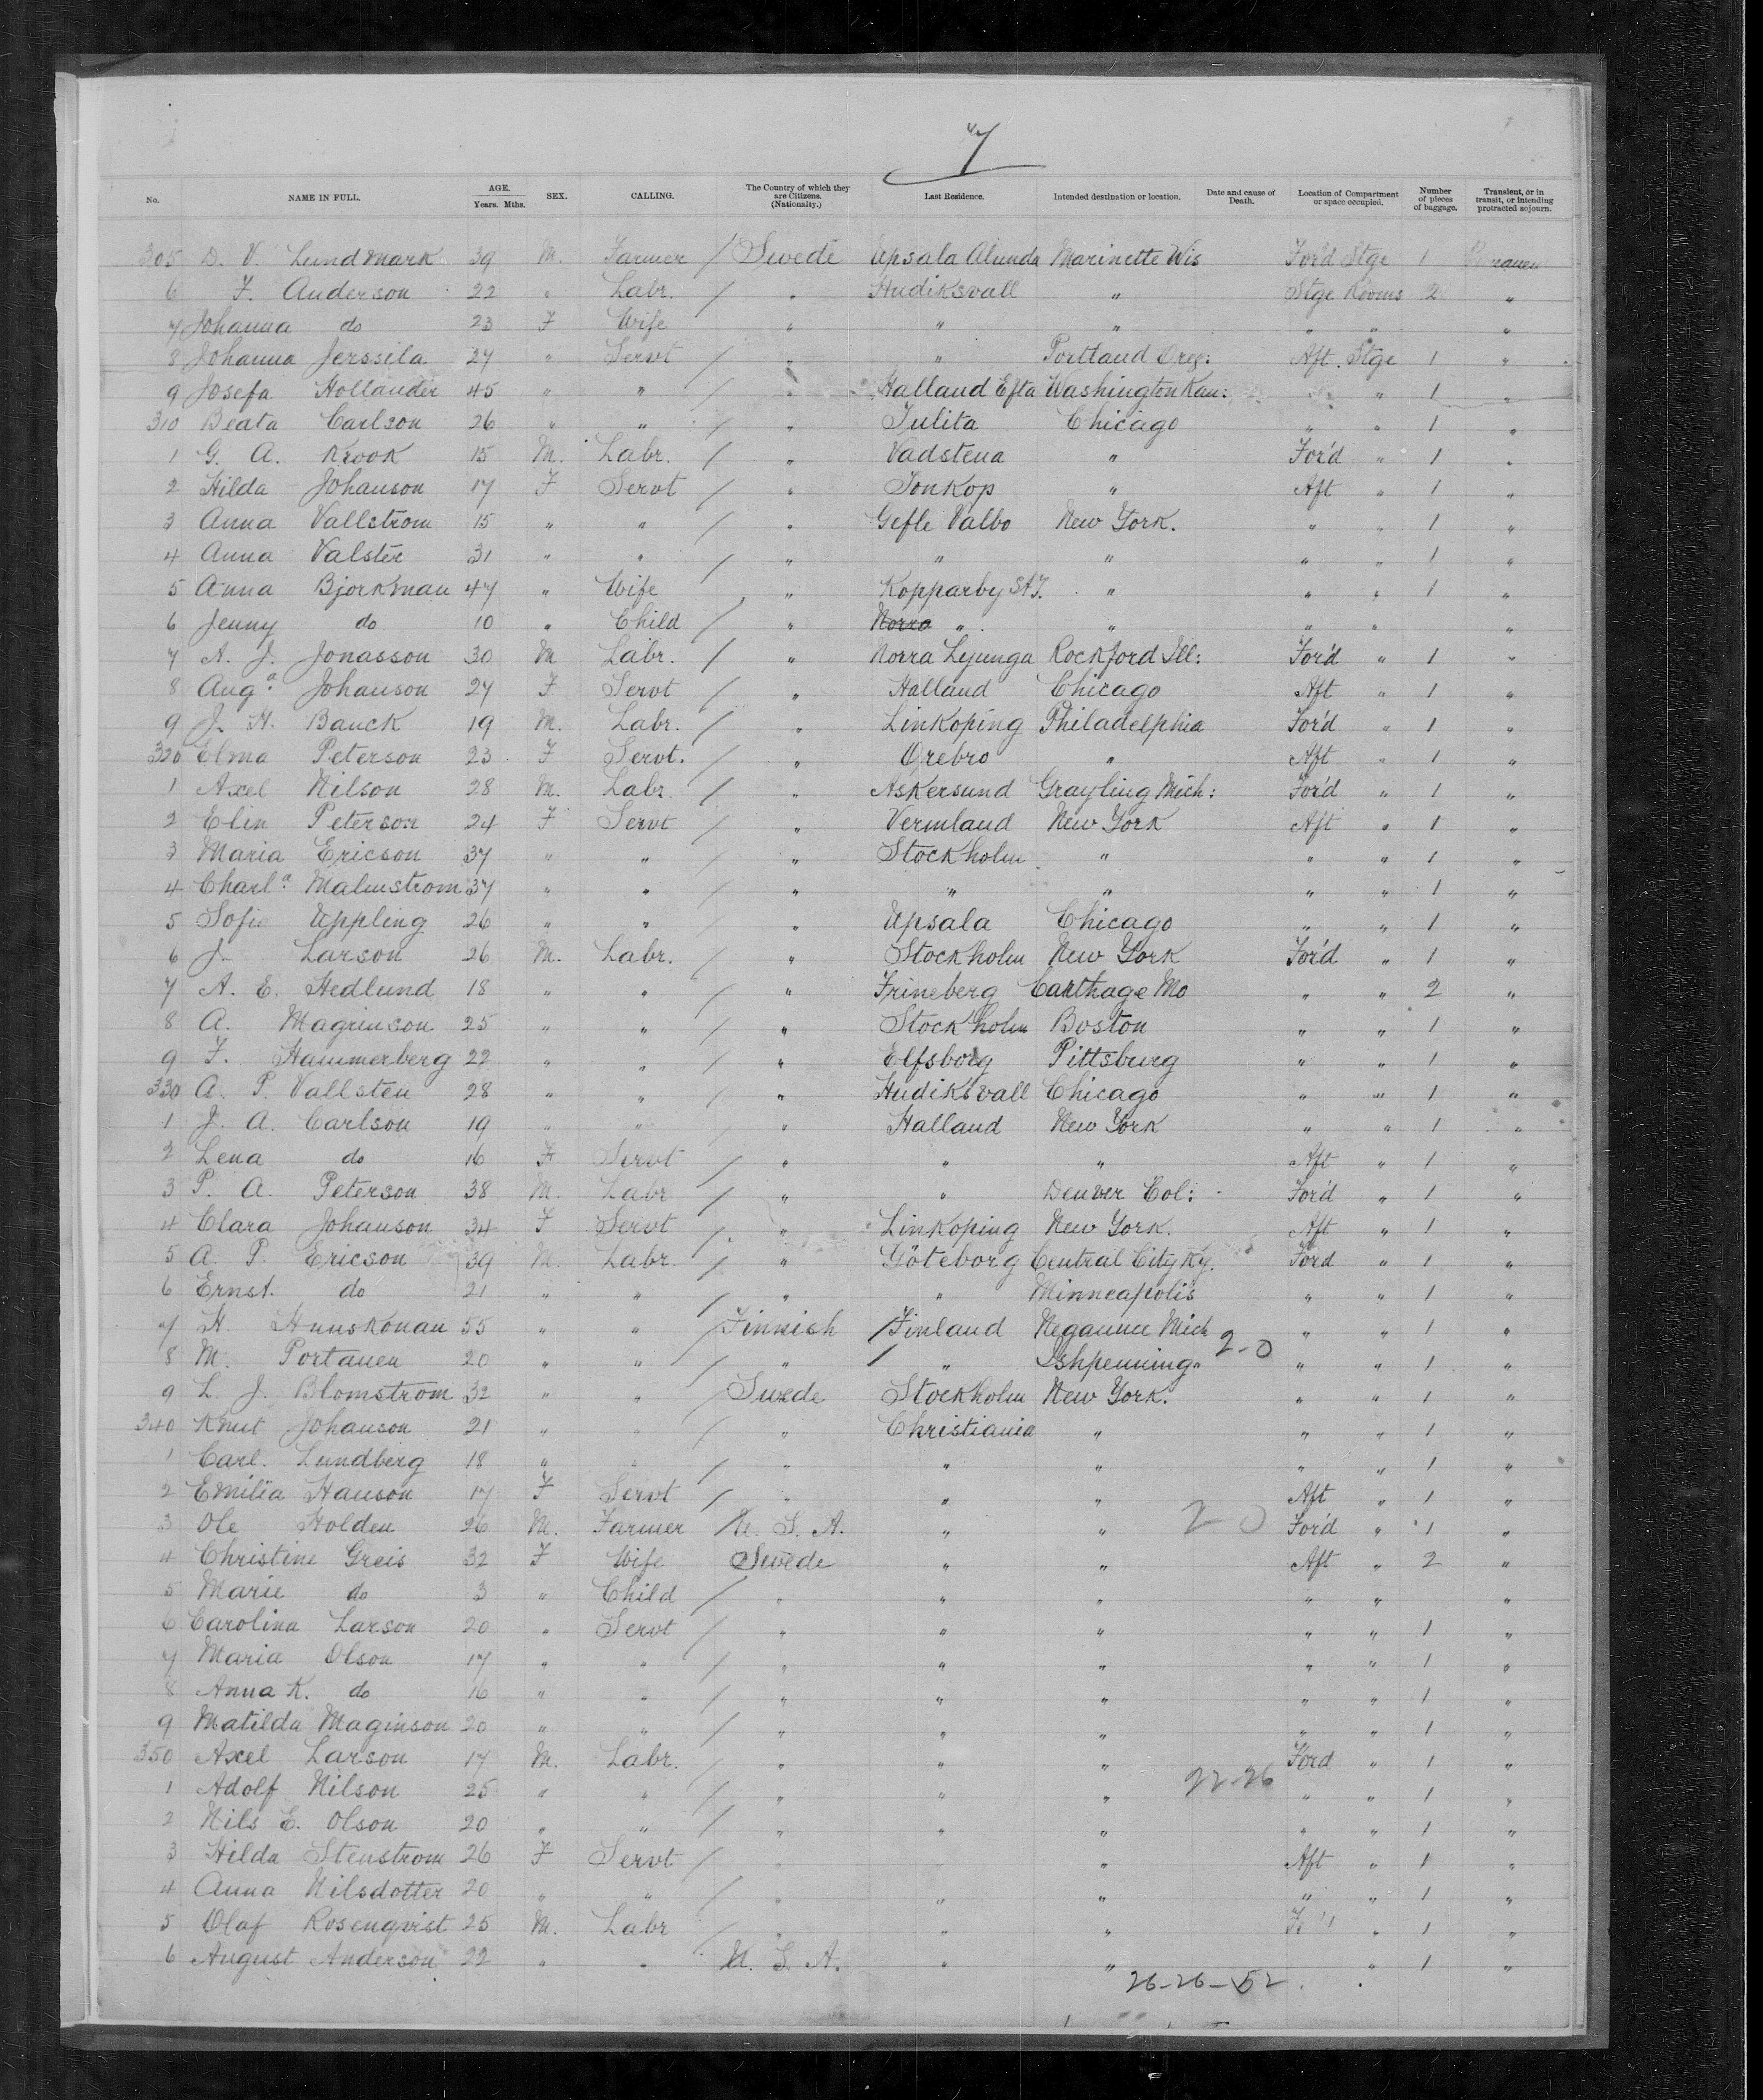 7
No. NAME IN FULL. AGE. Years. Mths. SEX. CALLING. The Country of which they are Citizens. (Nationality.) Last Residence. Intended destination or location. Date and cause of Death. Location of Compartment or space occupied. Number of pieces of baggage. Transient, or in transit, or intending protracted sojourn.
305 D. V. Lundmark 39 M. Farmer / Swede Upsala Alunda Marinette Wis For'd Stge 1
6 F. Anderson 22 " Labr. / " Hudiksvall " Stge Rooms 2 "
7 Johanna do 23 F Wife " " " " " "
8 Johanna Jerssila 27 " Servt / " " Portland Oreg: Aft. Stge 1 "
9 Josefa Hollander 45 " " / " Halland Efta Washington Kan: " 1 "
310 Beata Carlson 26 " " / " Julita Chicago " " 1 "
1 G. A. Krook 15 M. Labr. / " Vadstena " For'd " 1 "
2 Hilda Johanson 17 F Servt / " Jonkop " Aft " 1 "
3 Anna Vallstrom 15 " " / " Gefle Valbo New York. " " 1 "
4 Anna Valster 31 " " / " " " " " 1 "
5 Anna Bjorkman 47 " Wife " Kopparby St J. " " " 1 "
6 Jenny do 10 " Child / " Norra " " " " "
7 A. J. Jonasson 30 M Labr. / " Norra Ljunga Rockford Ill: For'd " 1 "
8 Aug.a Johanson 27 F Servt / " Halland Chicago Aft " 1 "
9 J. H. Banck 19 M. Labr. / " Linkoping Philadelphia For'd " 1 "
320 Elma Peterson 23 F Servt. / " Orebro " Aft " 1 "
1 Axel Nilson 28 M. Labr. / " Askersund Grayling Mich: For'd " 1 "
2 Elin Peterson 24 F Servt / " Vermland New York Aft " 1 "
3 Maria Ericson 37 " " / " Stockholm " " " 1 "
4 Charl.a Malmstrom 37 " " / " " " " " 1 "
5 Sofie Uppling 26 " " / " Upsala Chicago " " 1 "
6 J. Larson 26 M. Labr. / " Stockholm New York For'd " 1 "
7 A. E. Hedlund 18 " " / " Frineberg Carthage Mo " " 2 "
8 A. Magrinson 25 " " / " Stockholm Boston " " 1 "
9 F. Hammerberg 22 " " / " Elfsborg Pittsburg " " 1 "
330 A. P. Vallsten 28 " " / " Hudiksvall Chicago " " 1 "
1 J. A. Carlson 19 " " / " Halland New York " " 1 "
2 Lena do 16 F Servt / " " " Aft " 1 "
3 P. A. Peterson 38 M. Labr / " " Denver Col: For'd " 1 "
4 Clara Johanson 34 F Servt / " Linkoping New York. Aft " 1 "
5 A. P. Ericson 39 M. Labr. / " Göteborg Central City Ky. Ford " 1 "
6 Ernst. do 21 " " / " " Minneapolis " " 1 "
7 H. Hunskonan 55 " " / Finnish / Finland Negaunee Mich " " 1 "
2-0
8 M. Portanen 20 " " / " / " Ishpenning " " " 1 "
9 L. J. Blomstrom 32 " " Swede Stockholm New York. " " 1 "
340 Knut Johanson 21 " " / " Christiania " " " 1 "
1 Carl. Lundberg 18 " " / " " " " " 1 "
2 Emilia Hanson 17 F Servt / " " " Aft " 1 "
3 Ole Holden 26 M. Farmer / U. S. A. " " 2 0 For'd " 1 "
4 Christine Greis 32 F Wife Swede " " Aft " 2 "
5 Marie do 3 " Child / " " " " " "
6 Carolina Larson 20 " Servt / " " " " " 1 "
7 Maria Olson 17 " " / " " " " " 1 "
8 Anna K. do 16 " " / " " " " " 1 "
9 Matilda Maginson 20 " " / " " " " " 1 "
350 Axel Larson 17 M. Labr. / " " " Ford " 1 "
22-26
1 Adolf Nilson 25 " " / " " " " " 1 "
2 Nils E. Olson 20 " " / " " " " " 1 "
3 Hilda Stenstrom 26 F Servt / " " Aft " 1 "
4 Anna Nilsdotter 20 " " / " " " " " 1 "
5 Olaf Rosenqvist 25 M. Labr / " " " " 1 "
6 August Anderson 22 " " U. S. A. " " " 1 "
26-26-52